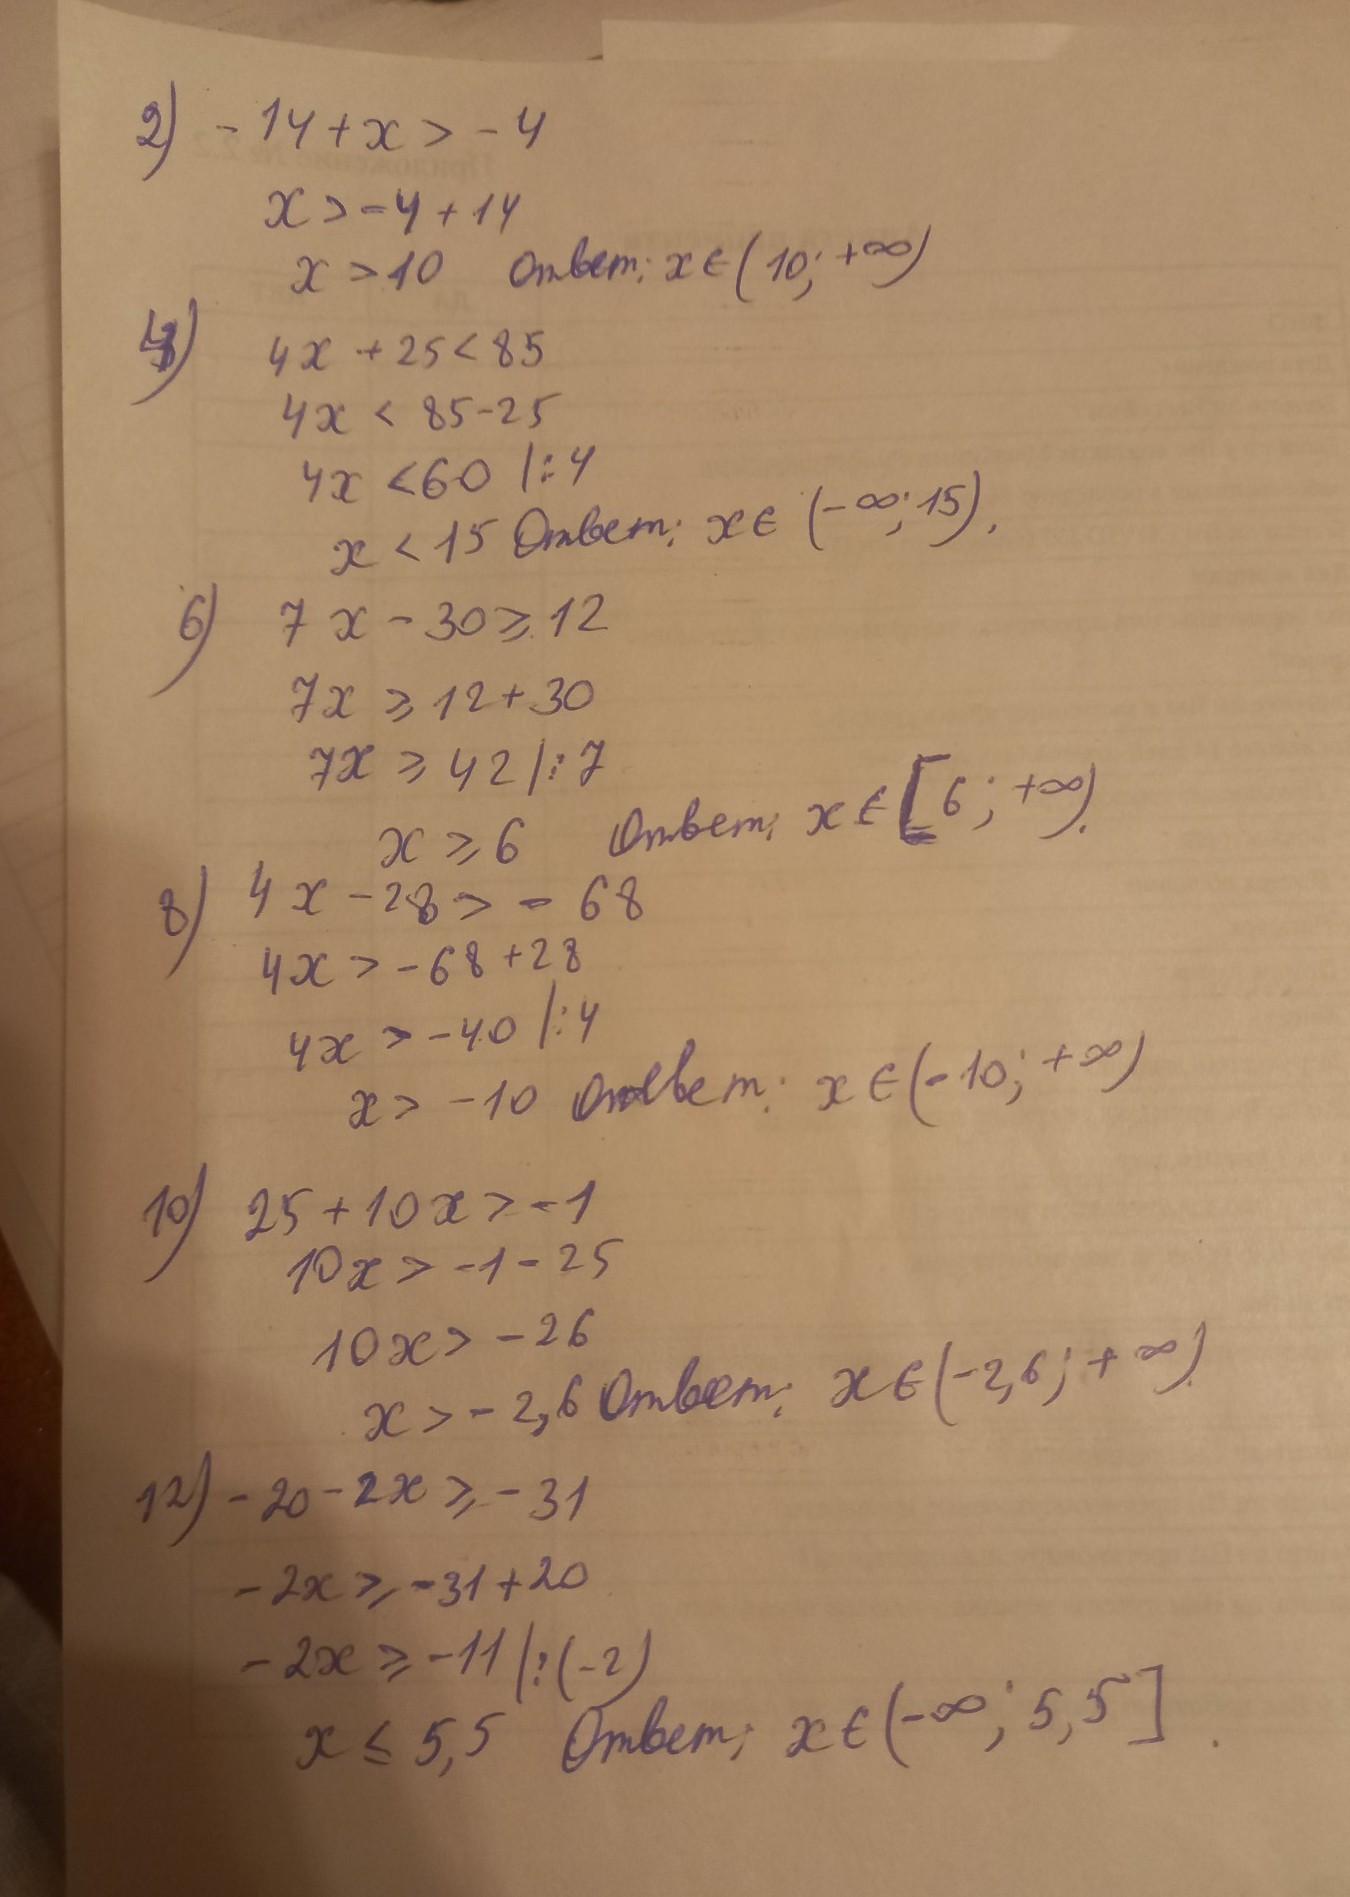 2) -14+x>-4
x>-4+14
x>10 Ответ: x∈(10;+∞)
4) 4x+25<85
4x<85-25
4x<60 |:4
x<15 Ответ: x∈(-∞;15).
6) 7x-30⩾12
7x⩾12+30
7x⩾42 |:7
x⩾6 Ответ: x∈[6;+∞).
8) 4x-28>-68
4x>-68+28
4x>-40 |:4
x>-10 Ответ: x∈(-10;+∞)
10) 25+10x>-1
10x>-1-25
10x>-26
x>-2,6 Ответ: x∈(-2,6;+∞).
12) -20-2x⩾-31
-2x⩾-31+20
-2x⩾-11 |:(-2)
x≤5,5 Ответ: x∈(-∞;5,5].